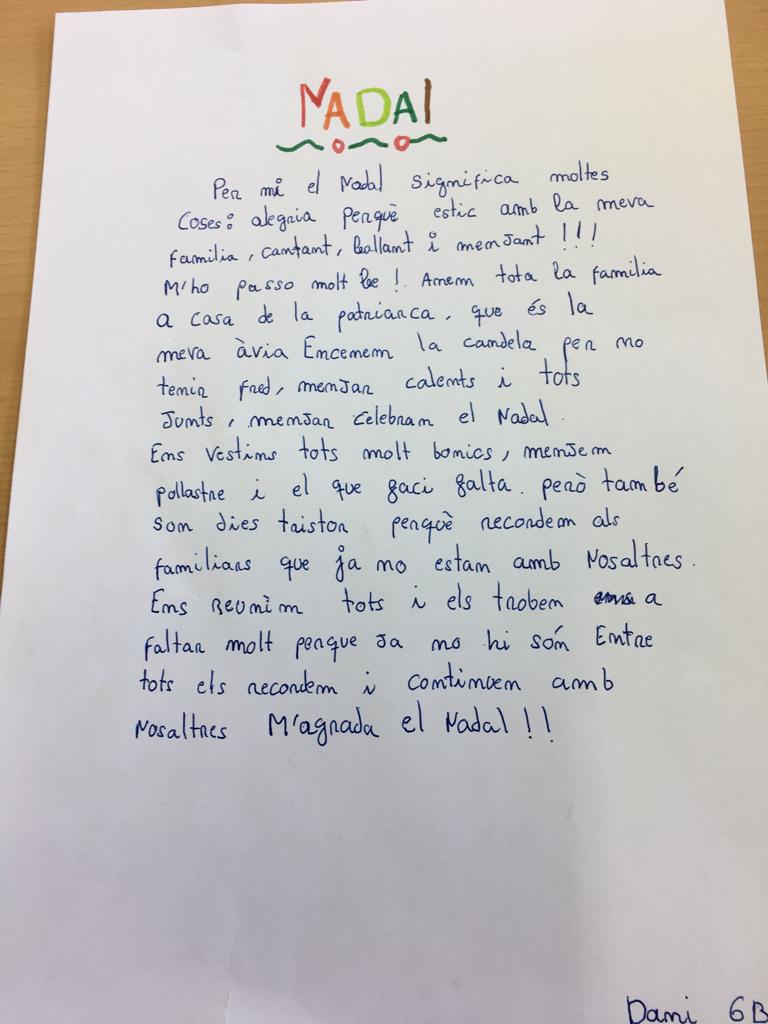 NADAl
Per mi el Nadal significa moltes
Coses: alegria perquè estic amb la meva
familia, cantant, ballant i menjant !!!
M'ho passo molt be! Anem tota la familia
a casa de la patriarca, que és la
meva àvia Encenem la candela per no
tenir fred, menjar calents i tots
Junts, menjar celebram el Nadal.
Ens vestims tots molt bonics, menjem
pollastre i el que faci falta. però també
son dies tristor perquè recordem als
familians que ja no estam amb Nosaltres.
Ens Reunìm tots i els trobem a
faltar molt perque ja no hi són Entre
tots els recordem i continuem amb
Nosaltres M'agrada el Nadal!!
Dani 6B